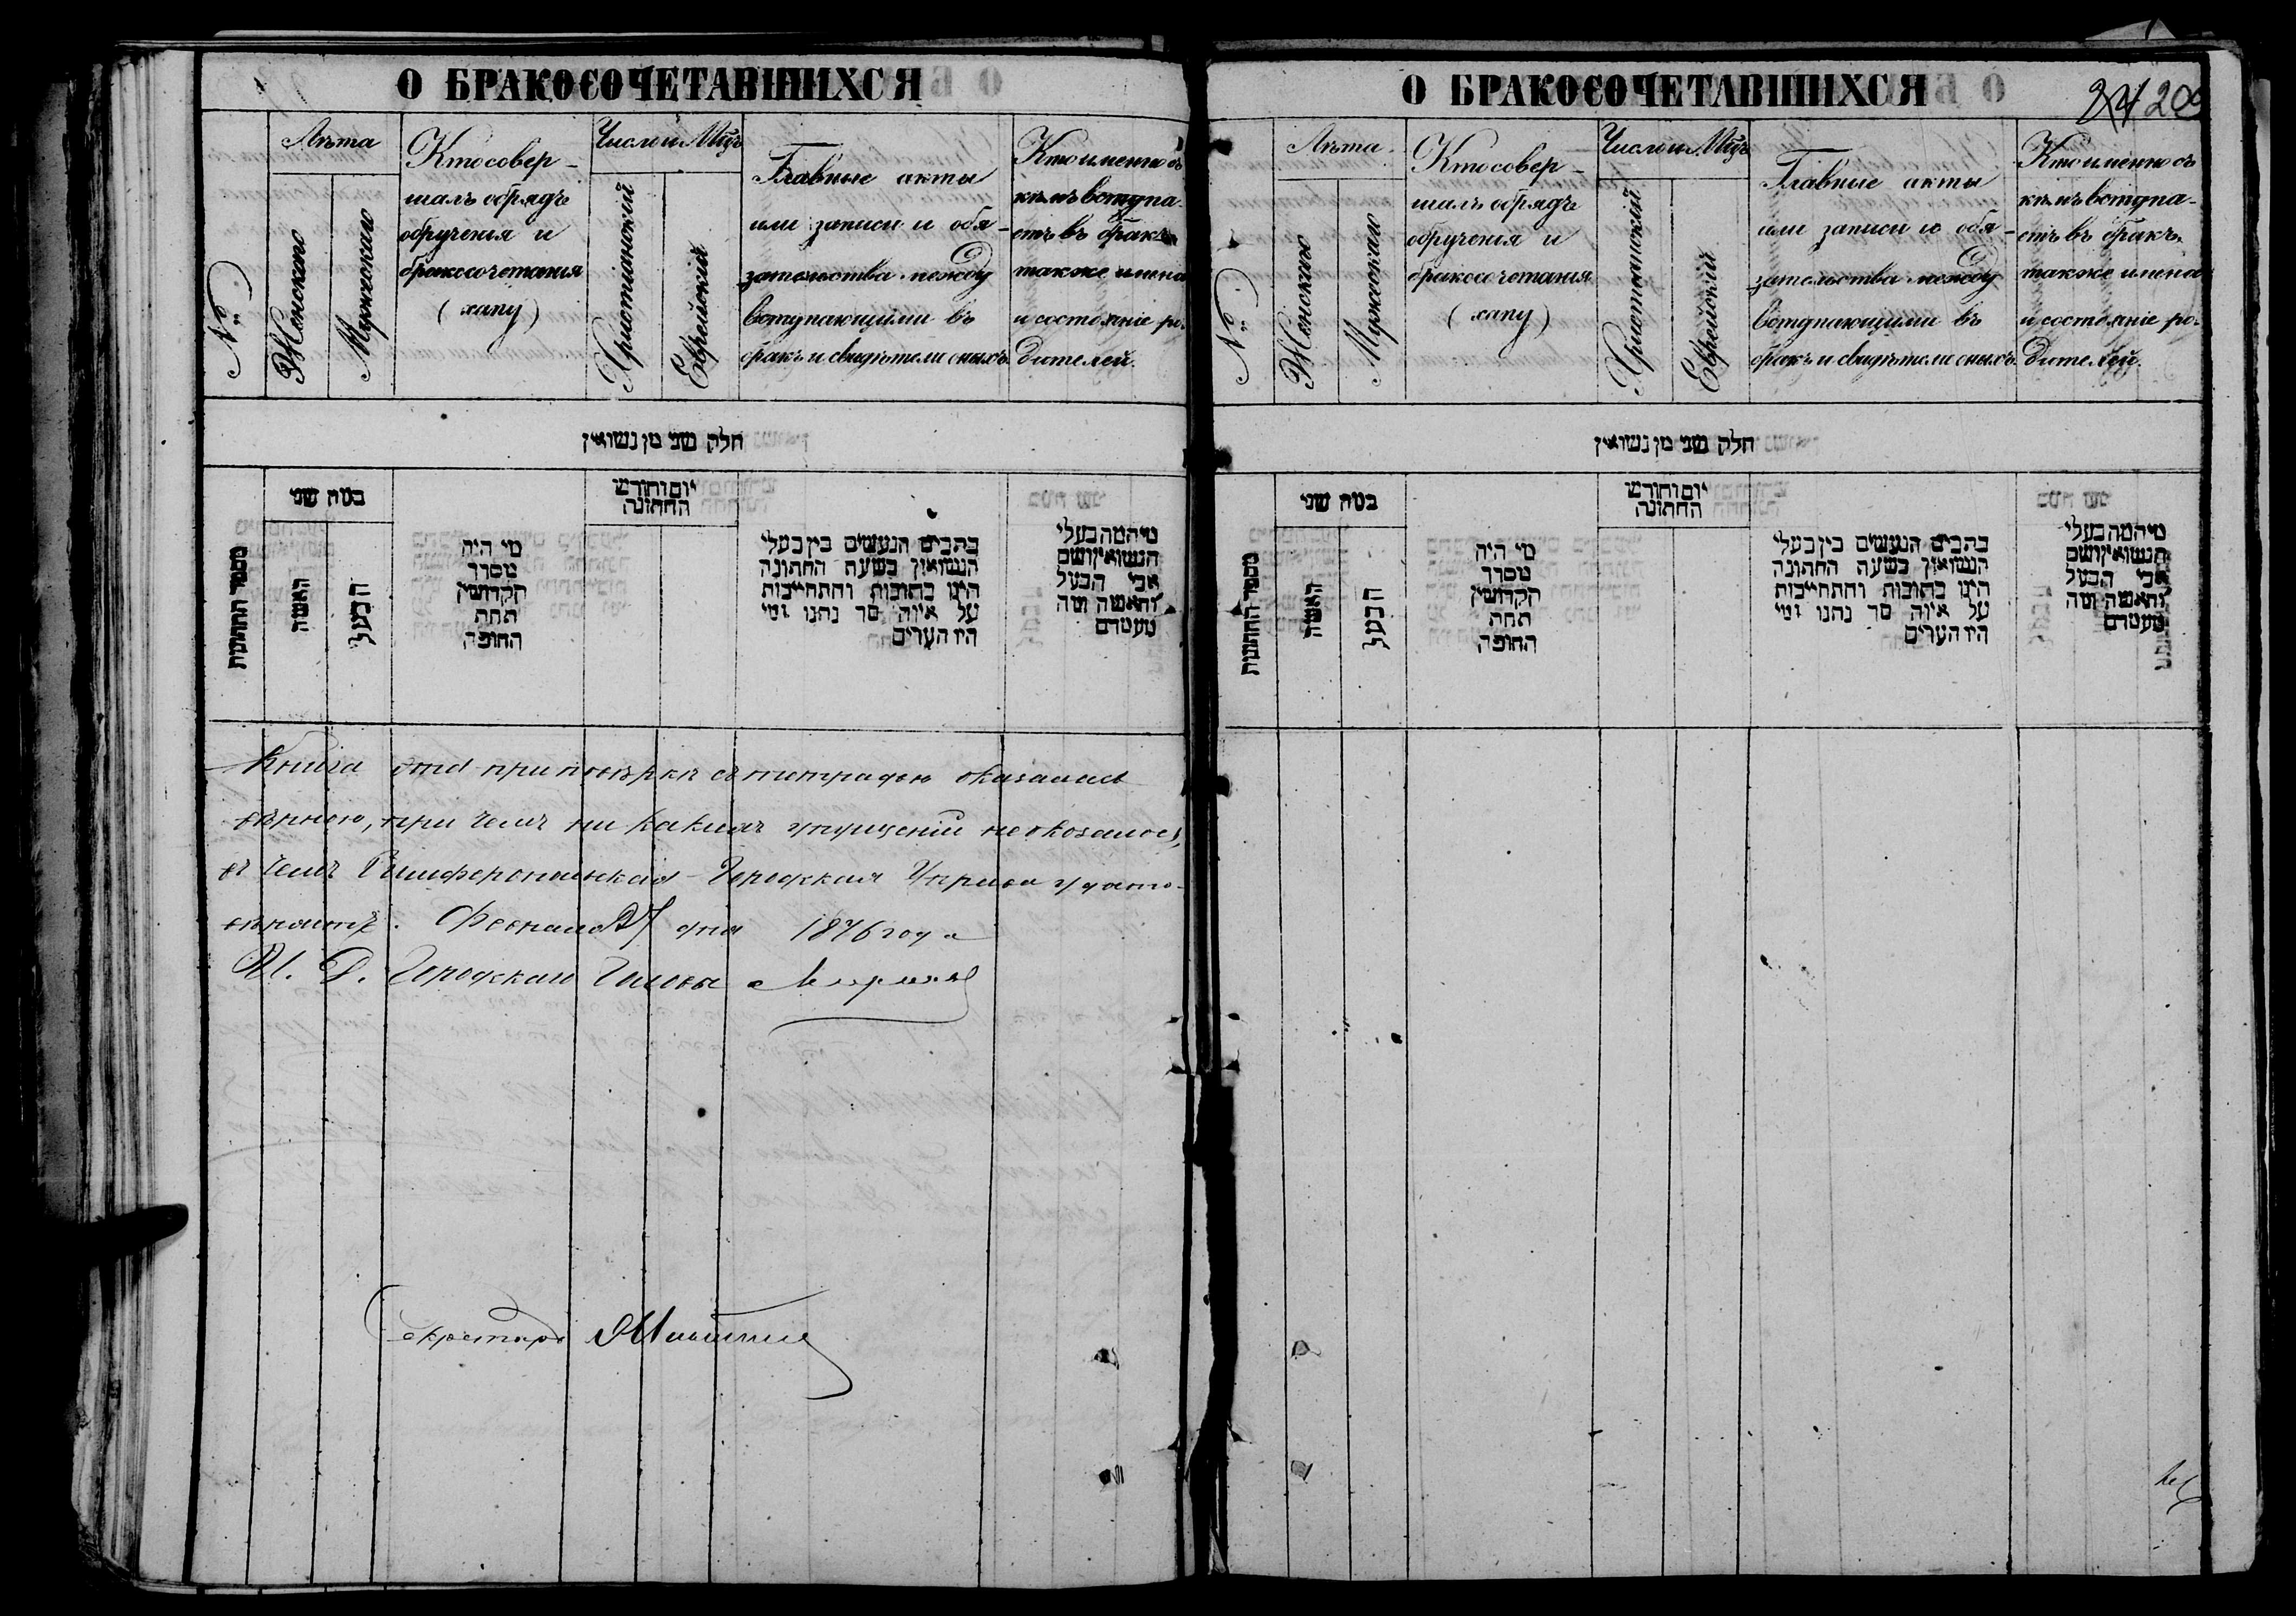 О БРАКОСОЧЕТАВШИХСЯ
№
Лѣта
Женскаго
Мужскаго
Кто совер-
шалъ обрядъ
обрученія и
бракосочетанія
(хапу)
Число и Мцъ
Христіанскій
Еврейскій
Главные акты
или записи и обя-
зательства между
вступающими въ
бракъ и свидѣтели оныхъ
Кто именно съ
кѣмъ вступа-
етъ въ бракъ,
также имена
и состояніе ро-
дителей.
חלק שני מן נשואין
מספר החתונות
כמה שני
האשה
הבעל
מי היה
מסדר
הקדושין
תחת
החופה
יום וחודש
החתונה
כתבים הנעשים בין בעלי
הנשואין בשעת החתונה
היינו כתובות והתחייבות
על איזה סך נתנו ומי
היו העדים
מי המה בעלי
הנשואין ושם
אבי הבעל
והאשה ומה
מעמדם
Книга эта при повѣркѣ съ тетрадью оказалась
вѣрною, при чемъ ни какихъ упущеній не оказалось,
въ чемъ Симферопольская Городская Управа удосто-
вѣряетъ. Февраля 27 дня 1876 года
И. Д. Городскаго Головы
Секретарь
О БРАКОСОЧЕТАВШИХСЯ
209
№
Лѣта
Женскаго
Мужскаго
Кто совер-
шалъ обрядъ
обрученія и
бракосочетанія
(хапу)
Число и Мцъ
Христіанскій
Еврейскій
Главные акты
или записи и обя-
зательства между
вступающими въ
бракъ и свидѣтели оныхъ
Кто именно съ
кѣмъ вступа-
етъ въ бракъ,
также имена
и состояніе ро-
дителей.
חלק שני מן נשואין
מספר החתונות
כמה שני
האשה
הבעל
מי היה
מסדר
הקדושין
תחת
החופה
יום וחודש
החתונה
כתבים הנעשים בין בעלי
הנשואין בשעת החתונה
היינו כתובות והתחייבות
על איזה סך נתנו ומי
היו העדים
מי המה בעלי
הנשואין ושם
אבי הבעל
והאשה ומה
מעמדם